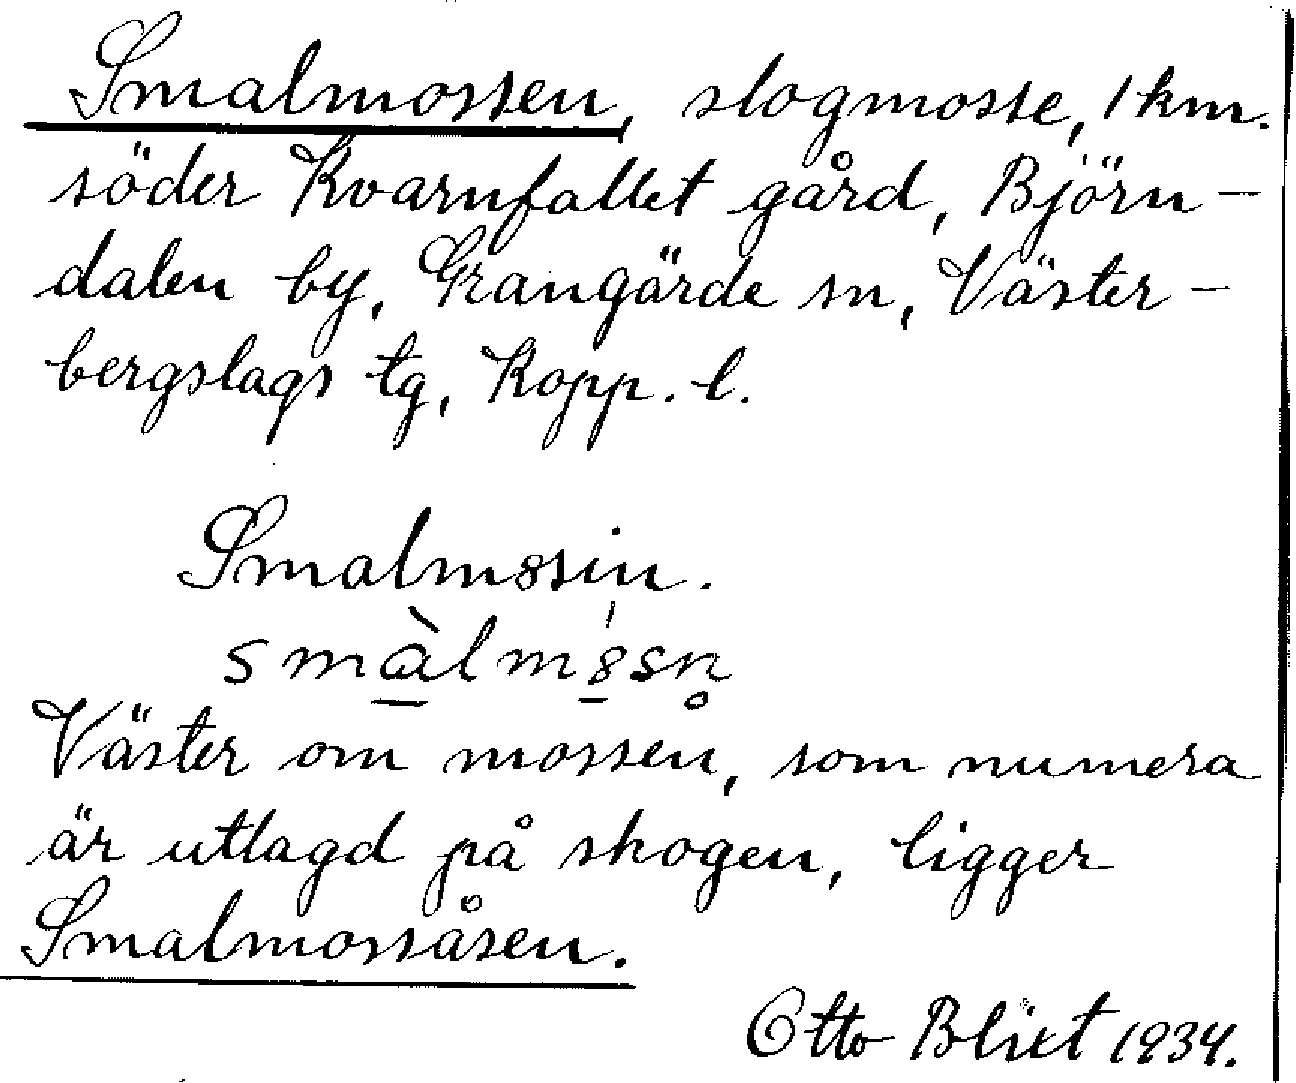 Smalmossen, slogmosse, 1 km.
söder Kvarnfallet gård, Björn-
dalen by, Grangärde sn, Väster-
bergslags tg, Kopp. l.
Smalmȣsin.
smà̠lmȣ̠́sn̥
Väster om mossen, som numera
är utlagd på skogen, ligger
Smalmossåsen.
Otto Blixt 1934.